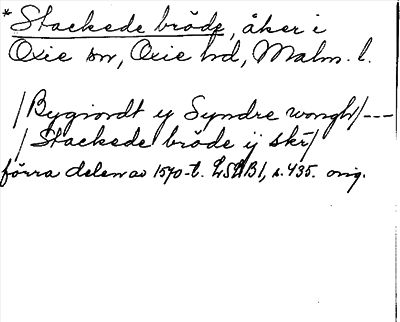 *Stackede bröde, åker i
Oxie sn, Oxie hd, Malm. l.
/Bygiordt y Syndre wongh/---
/Stackede bröde ij skr/
förra delen av 1570-t. LSÅB1, s. 435. orig.